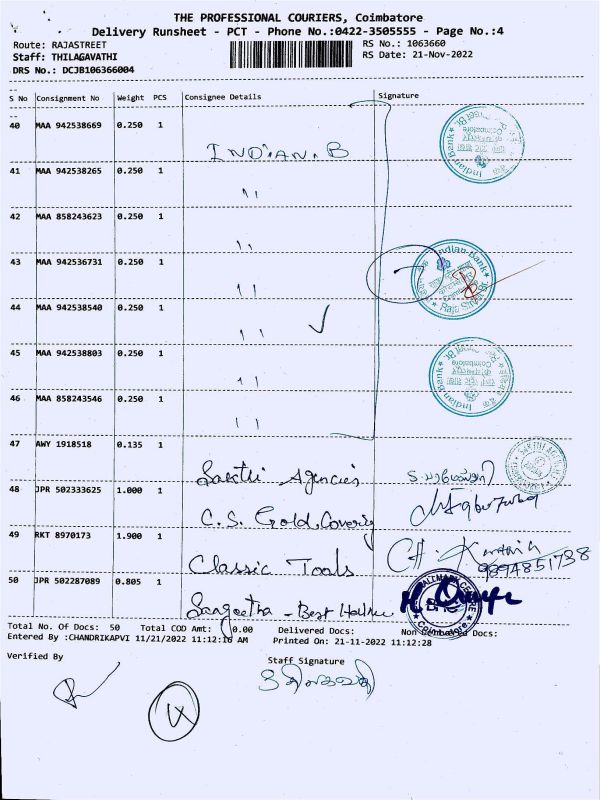 THE PROFESSIONAL COURIERS, Coimbatore
Delivery Runsheet - PCT - Phone No.:0422-3505555 - Page No.:4
Route: RAJASTREET RS No.: 1063660
Staff: THILAGAVATHI RS Date: 21-Nov-2022
DRS No.: DCJB106366004
S No Consignment No Weight PCS Consignee Details Signature
40 MAA 942538669 0.250 1 INDIAN.B
41 MAA 942538265 0.250 1 ''
42 MAA 858243623 0.250 1 ''
43 MAA 942536731 0.250 1 ''
44 MAA 942538540 0.250 1 ''
45 MAA 942538803 0.250 1 ''
46 MAA 858243546 0.250 1 ''
Indian Bank
Coimbatore
Indian Bank
Raja Street Br.
Indian Bank
Coimbatore
47 AWY 1918518 0.135 1 Sakthi Agencies
48 JPR 502333625 1.000 1 C.S. Gold Covering
49 RKT 8970173 1.900 1 Classic Tools 9894851738
50 JPR 502287089 0.805 1 Sangeetha - Best
HALLMARK CENTRE
Coimbatore
Total No. Of Docs: 50 Total COD Amt: 0.00 Delivered Docs: Non Docs:
Entered By :CHANDRIKAPVI 11/21/2022 11:12:16 AM Printed On: 21-11-2022 11:12:28
Verified By Staff Signature
4